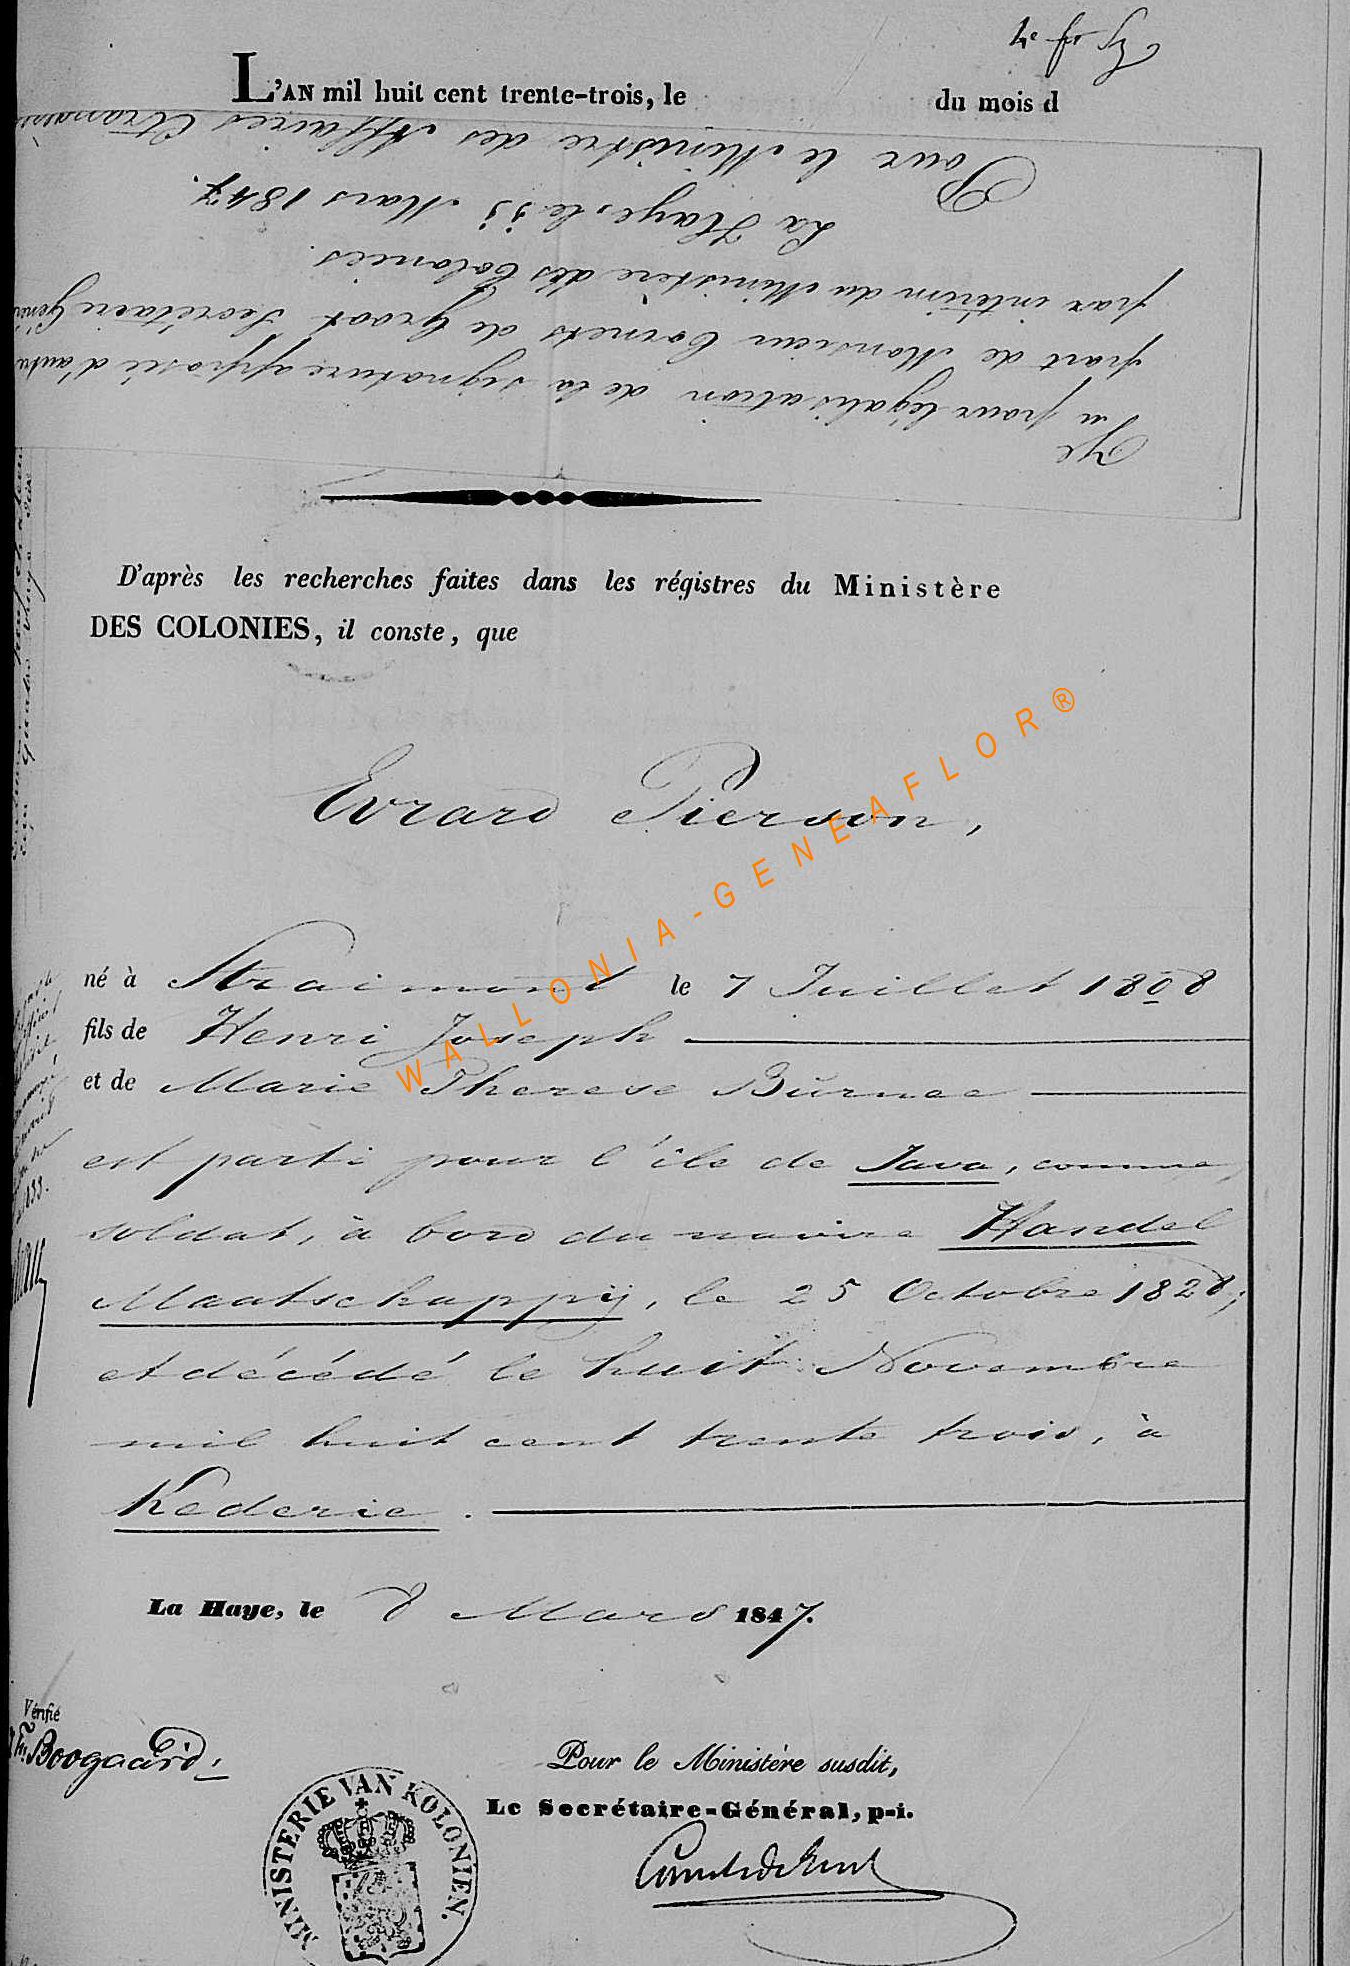 L'AN mil huit cent trente-trois, le du mois d
Vu pour légalisation de la signature apposée d'autre
part de Monsieur Cornets de Groot Secrétaire Géné
par interim du Ministère des Colonies.
La Haye, le 11 Mars 1847.
Pour le Ministre des Affaires Etrangères
D'après les recherches faites dans les régistres du Ministère
DES COLONIES, il conste, que
Evrard Pierson,
né à Straimont le 7 Juillet 1808
fils de Henri Joseph
et de Marie Therese Burnee
est parti pour l'île de Java, comme
soldat, à bord du navire Handel
Maatschappij, le 25 Octobre 1828;
et décédé le huit Novembre
mil huit cent trente trois, à
Kederie.
La Haye, le 8 Mars 1847.
Vérifié
Boogaard
Pour le Ministère susdit,
Le Secrétaire-Général, p-i.
Cornets de Groot
MINISTERIE VAN KOLONIEN.
WALLONIA-GENEAFLOR®